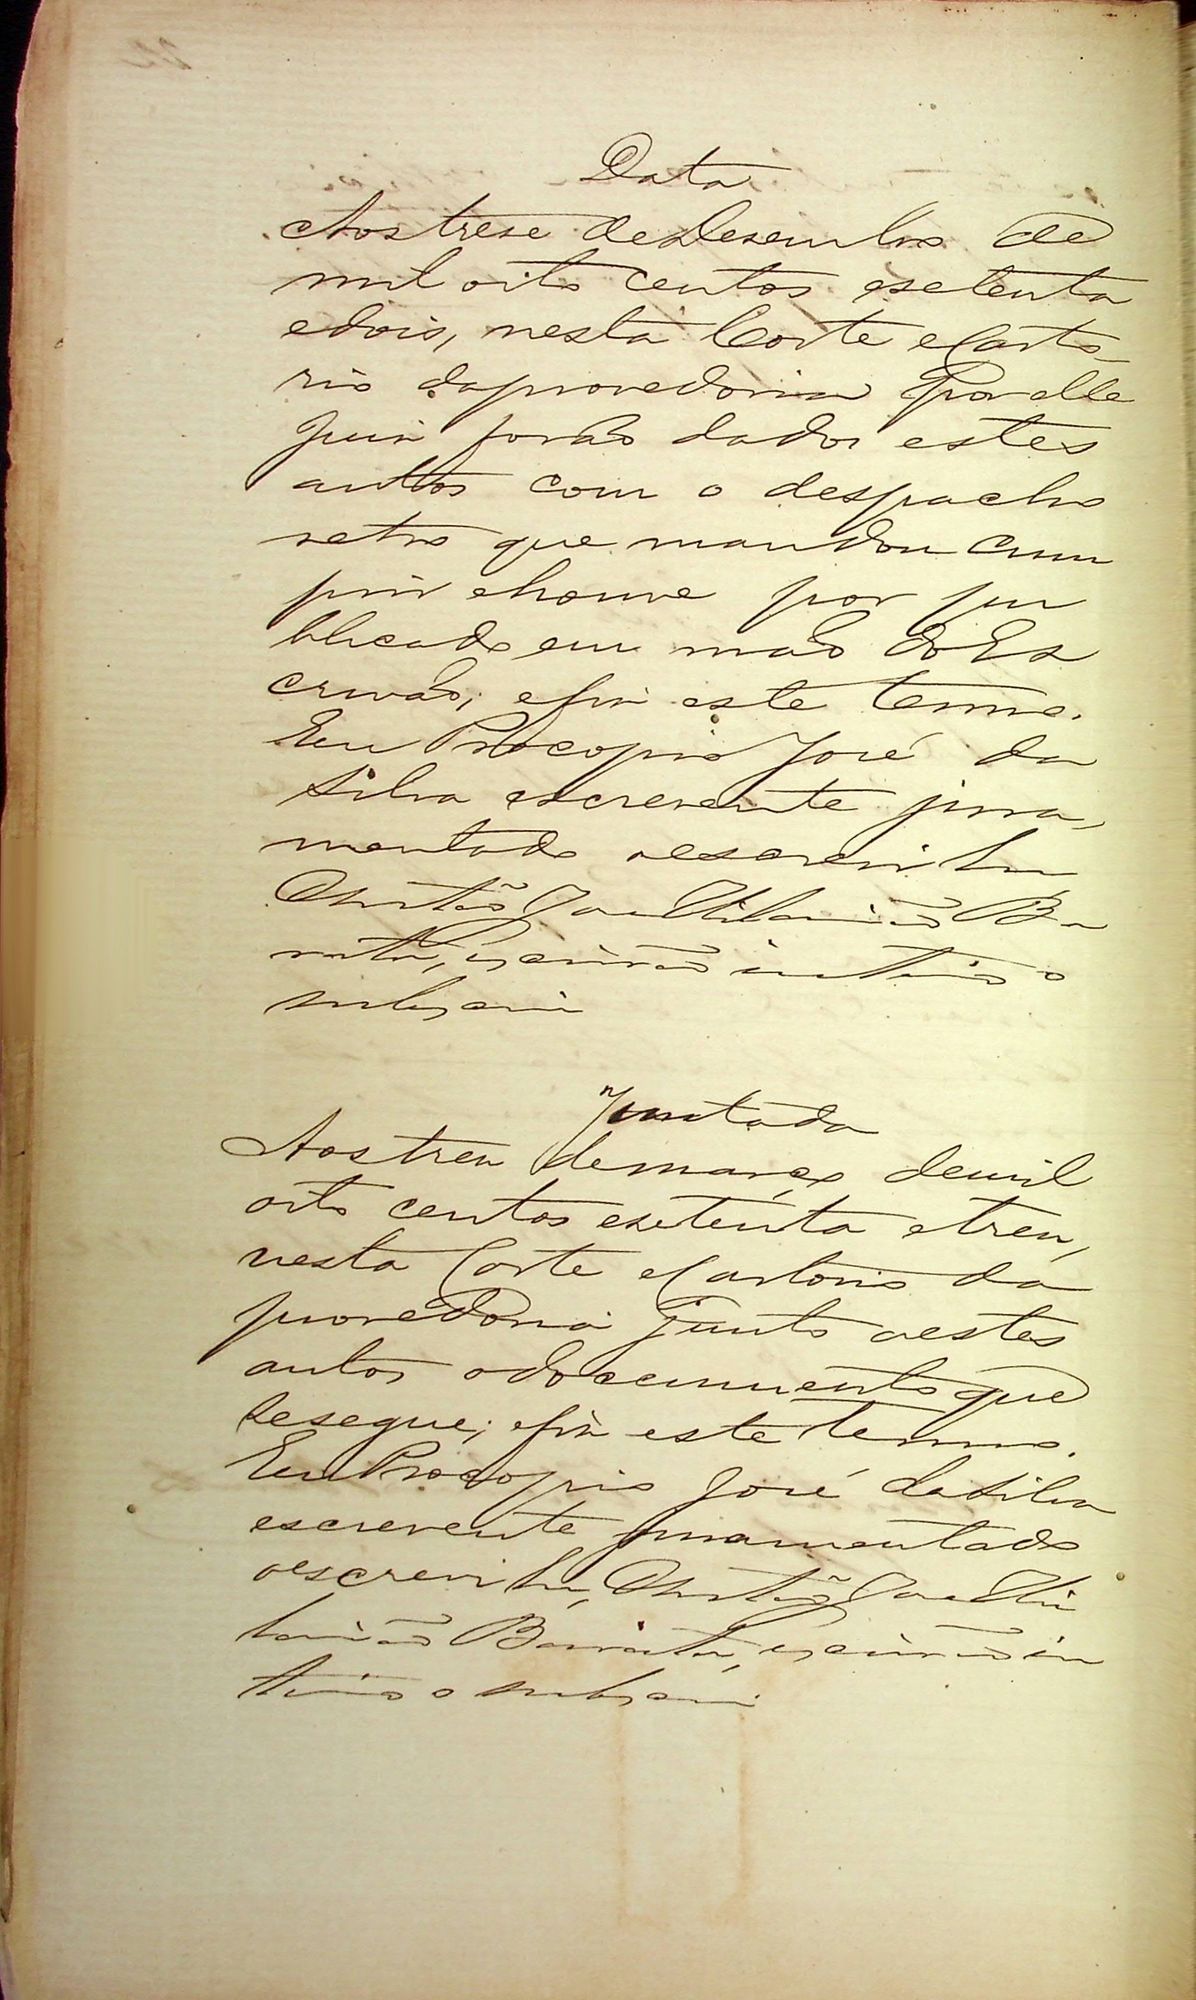 Data
Aos trese de Desembro de
mil oito centos e setenta
e dois, nesta Corte e Carto-
rio da provedoria Por elle
Juiz forão dados estes
autos com o despacho
retro que mandou cum
prir e houve por pu
blicado em mão do Es
crivão; e fiz este termo.
Eu Procopio José da
Silva escrevente jura,
mentado o escrevi Eu
José Ba
rata, escrivão interino o
subscrevi
Juntada
Aos tres de março de mil
oito centos e setenta e tres,
nesta Corte e Cartorio da
provedoria junto a estes
autos o documento que
se segue; e fiz este termo.
Eu Procopio José da Silva
escrevente juramentado
o escrevi Eu,
Barata, escrivão in
terino o subscrevi